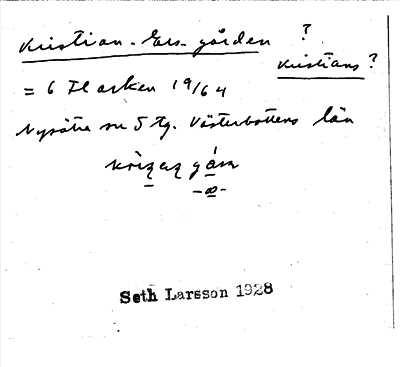 Kristian-Ers-gården ?
Kristians ?
= 6 Flarken 19/64
Nysätra sn 5 tg. Västerbottens län
gán
Seth Larsson 1928